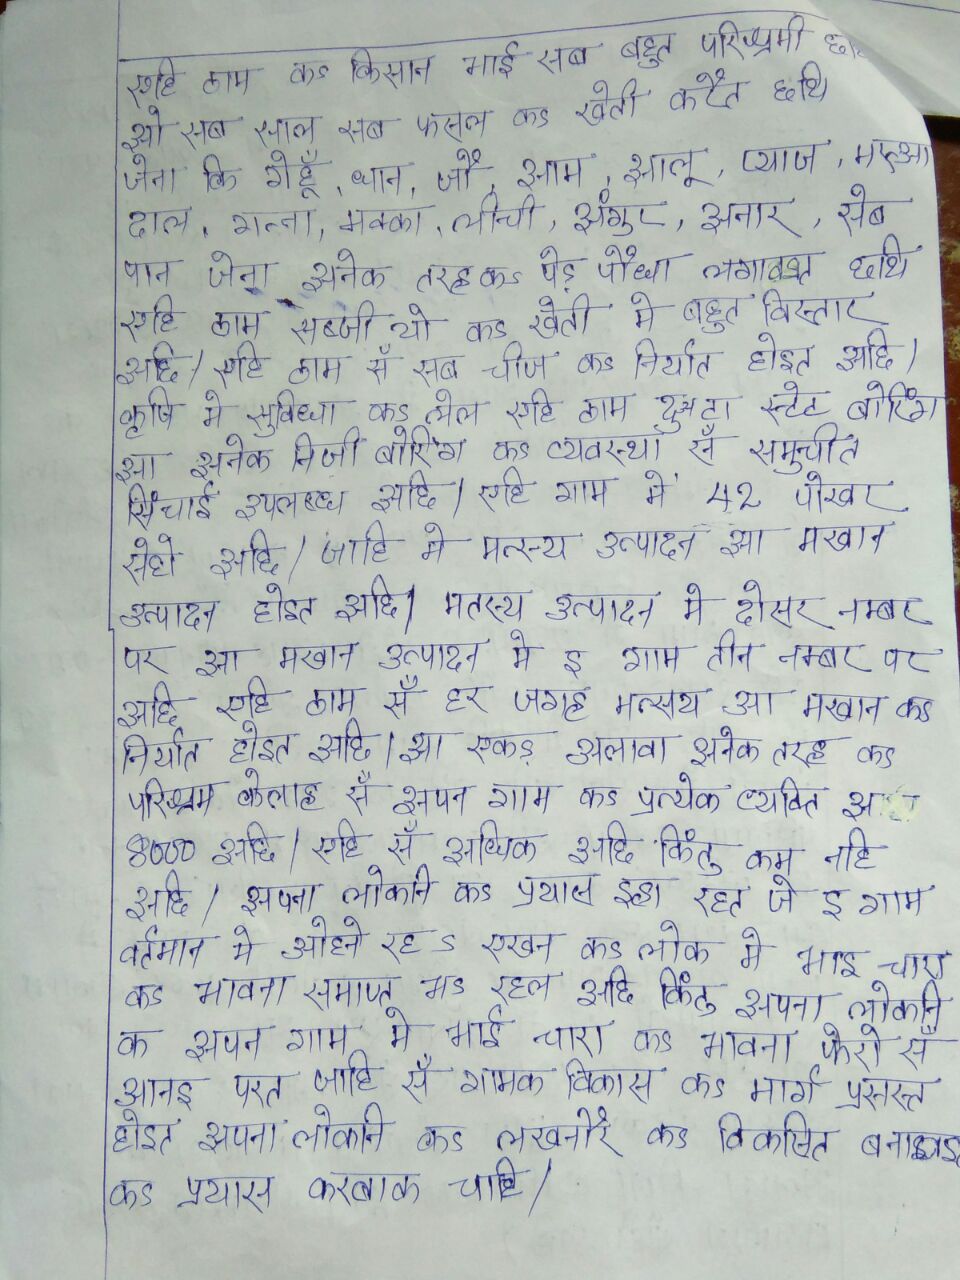 एहि ठाम कऽ किसान भाई सब बहुत परिश्रमी
ओ सब साल सब फसल कऽ खेती करैत छथि
जेना कि गेहूँ, धान, जौ, आम, आलू, प्याज, मरुआ
दाल, गन्ना, मक्का, लीची, अंगुर, अनार, सेब
पान जेना अनेक तरहकऽ पेड़ पौधा लगाबइत छथि
एहि ठाम सब्जी यो कऽ खेती मे बहुत विस्तार
अछि/ एहि ठाम सँ सब चीज कऽ निर्यात होइत अछि/
कृषि मे सुविधा कऽ लेल एहि ठाम दुअटा स्टेट बोरिंग
आ अनेक निजी बोरिंग कऽ व्यवस्था सँ समुचीत
सिंचाई उपलब्ध अछि/ एहि गाम में 42 पोखर
सेहो अछि/ जाहि मे मत्स्य उत्पादन आ मखान
उत्पादन होइत अछि/ मतस्य उत्पादन मे दोसर नम्बर
पर आ मखान उत्पादन मे इ गाम तीन नम्बर पर
अछि एहि ठाम सँ हर जगह मत्सय आ मखान कऽ
निर्यात होइत अछि/ आ एकड़ अलावा अनेक तरह कऽ
परिश्रम केलाह सँ अपन गाम कऽ प्रत्येक व्यक्ति
8000 अछि/ एहि सँ अधिक अछि किंतु कम नहि
अछि/ अपना लोकनि कऽ प्रयास इहा रहत जे इ गाम
वर्तमान मे ओहने रहऽ एखन कऽ लोक मे भाइ चारा
कऽ भावना समाप्त भऽ रहल अछि किंतु अपना लोकनि
क अपन गाम मे भाई चारा कऽ भावना फेरो सँ
आनइ परत जाहि सँ गामक विकास कऽ मार्ग प्रसस्त
होइत अपना लोकनि कऽ लखनौर कऽ विकसित
कऽ प्रयास करबाक चाहि/